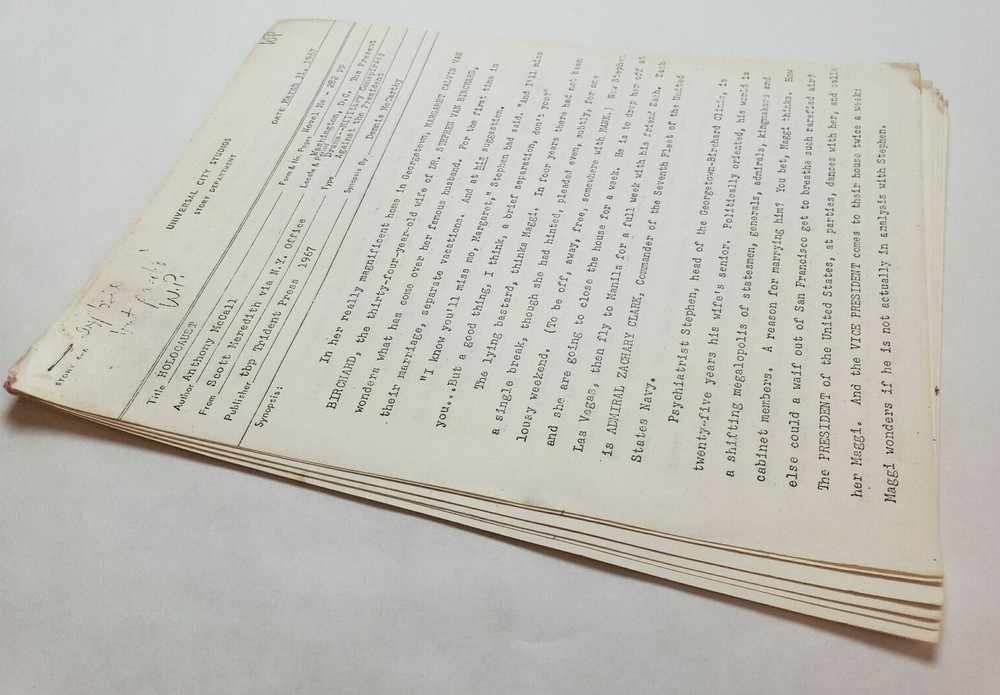 WP
UNIVERSAL CITY STUDIOS
STORY DEPARTMENT
STORY
DATE March 31, 1967
Title HOLOCAUST
Form & No. Pages Novel Ms - 282 pp
Author Anthony McCall
Locale & Washington, D.C, The Present
From Scott Meredith via N.Y. Office
Type Drama--Military Conspiracy
Against the President
Publisher tbp Trident Press 1967
Synopsis By Dennis McCarthy
Synopsis:
In her really magnificent home in Georgetown, MARGARET CALVIN VAN
BIRCHARD, the thirty-four-year-old wife of DR. STEPHEN VAN BIRCHARD,
wonders what has come over her famous husband. For the first time in
their marriage, separate vacations. And at his suggestion.
"I know you'll miss me, Margaret," Stephen had said. "And I'll miss
you...But a good thing, I think, a brief separation, don't you?"
The lying bastard, thinks Maggi. In four years there had not been
a single break, though she had hinted, pleaded even, subtly, for one
lousy weekend. (To be off, away, free, somewhere with HANK.) Now Stephen
and she are going to close the house for a week. He is to drop her off at
Las Vegas, then fly to Manila for a full week with his friend Zach. Zach
is ADMIRAL ZACHARY CLARK, Commander of the Seventh Fleet of the United
States Navy.
Psychiatrist Stephen, head of the Georgetown-Birchard Clinic, is
twenty-five years his wife's senior. Politically oriented, his world is
a shifting megalopolis of statesmen, generals, admirals, kingmakers and
cabinet members. A reason for marrying him? You bet, Maggi thinks. How
else could a waif out of San Francisco get to breathe such rarefied air?
The PRESIDENT of the United States, at parties, dances with her, and calls
her Maggi. And the VICE PRESIDENT comes to their house twice a week:
Maggi wonders if he is not actually in analysis with Stephen.